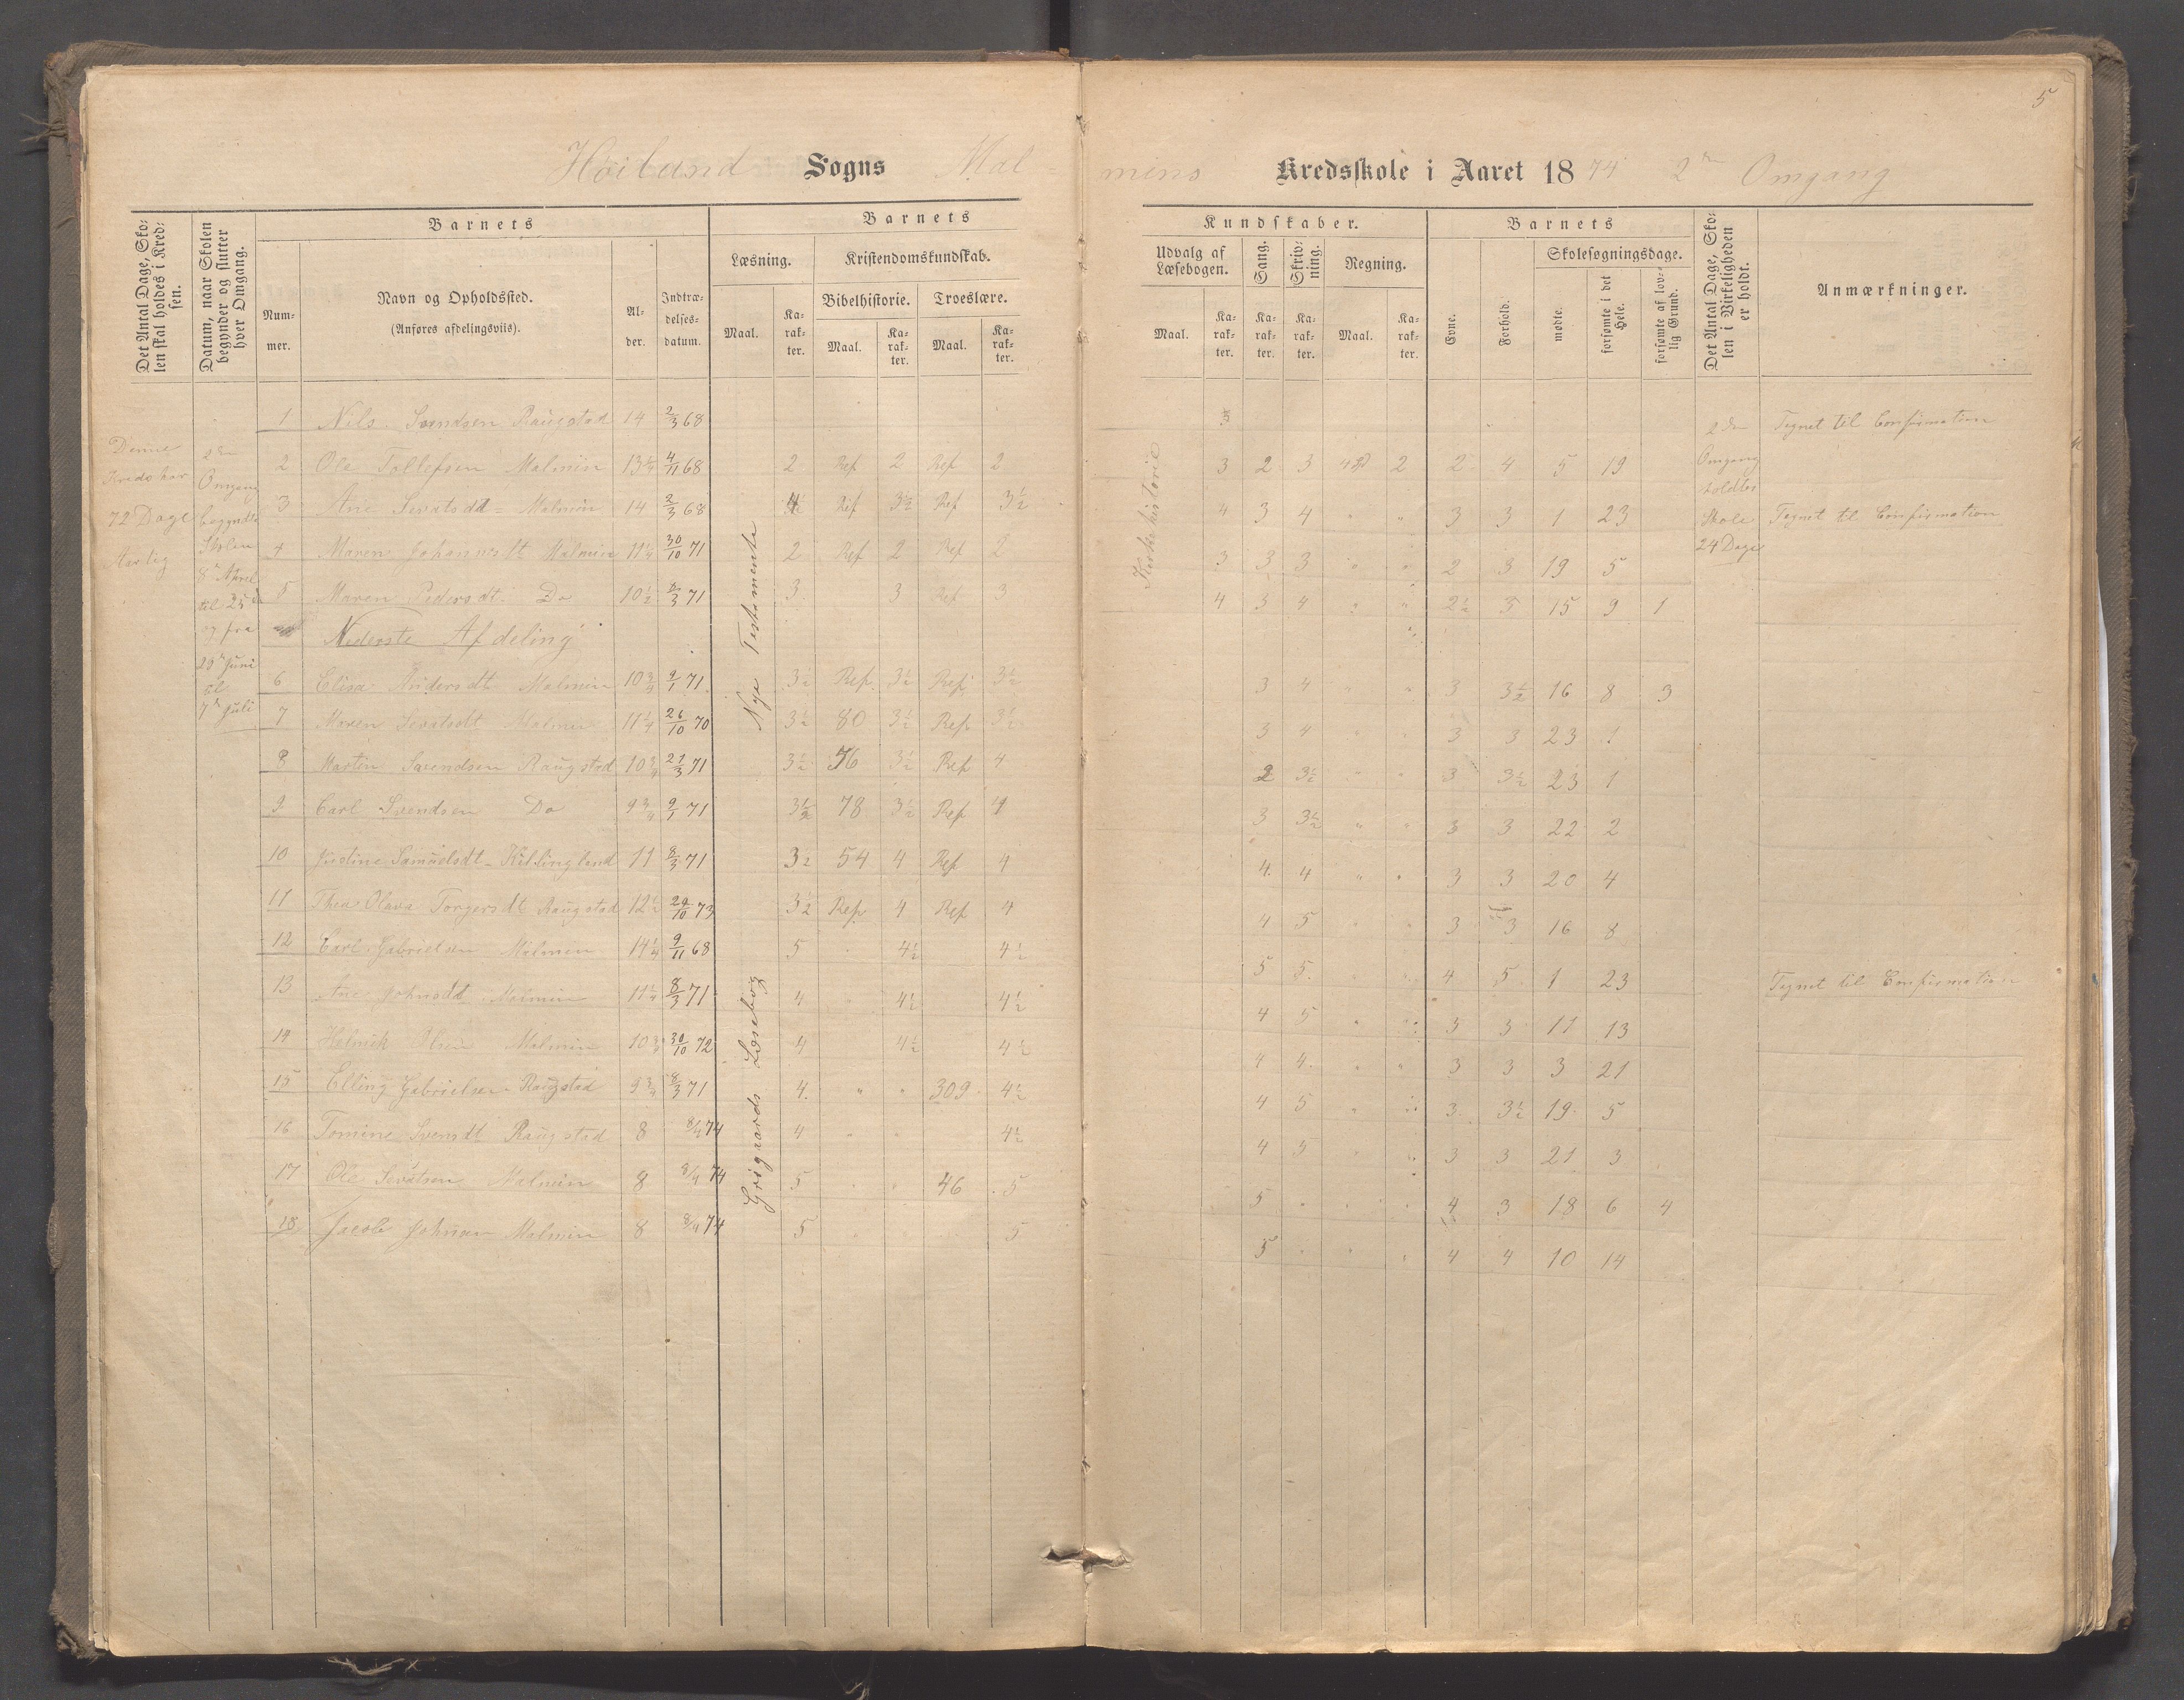 5
Höiland Sogns Malmins Kredsskole i Aaret 1874 2den Omgang
Det Antal Dage, Skolen skal holdes i Kredsen.
Datum, naar Skolen begynder og slutter hver Omgang.
Barnets
Nummer.
Navn og Opholdssted.
(Anføres afdelingsviis).
Alder.
Indtrædelsesdatum.
Barnets Kundskaber.
Læsning.
Kristendomskundskab.
Bibelhistorie.
Troeslære.
Maal. Karakter. Maal. Karakter. Maal. Karakter.
Udvalg af Læsebogen.
Sang.
Skrivning.
Regning.
Maal. Karakter. Karakter. Karakter. Maal. Karakter.
Barnets
Evne.
Forhold.
Skolesøgningsdage.
mødte.
forsømte i det Hele.
forsømte af lovlig Grund.
Det Antal Dage, Skolen i Virkeligheden er holdt.
Anmærkninger.
Denne
Kreds har
72 Dage
Aarlig
2den
Omgang
begyndte
Skolen
8de April
til 25de
og fra
29de Juni
til
7de Juli
Nye Testamente
Grigaards Læsebog
Kirkehistorie
2den
Omgang
holdtes
Skole
24 Dage
1 Nils Svendsen Raugstad 14 2/3 68 3 Tegnet til Confirmation
2 Ole Tollefsen Malmin 13 1/4 4/11 68 2 Rep 2 Rep 2 3 2 3 2 2 4 5 19
3 Ane Sivatsdt = Malmin 14 2/3 68 4 1/2 Rep 3 1/2 Rep 3 1/2 4 3 4 " " 3 3 1 23 Tegnet til Confirmation
4 Maren Johannesdt Malmin 11 1/4 30/10 71 2 Rep 2 Rep 2 3 3 3 " " 2 3 19 5
5 Maren Pedersdt Do 10 1/2 8/3 71 3 3 Rep 3 4 3 4 " " 2 1/2 3 15 9 1
Nederste Afdeling
6 Elisa Andersdt Malmin 10 3/4 9/1 71 3 1/2 Rep 3 1/2 Rep 3 1/2 3 4 " " 3 3 1/2 16 8 3
7 Maren Sivatsdt Malmin 11 1/4 26/10 70 3 1/2 80 3 1/2 Rep 3 1/2 3 4 " " 3 3 23 1
8 Martin Svendsen Raugstad 10 3/4 21/3 71 3 1/2 76 3 1/2 Rep 4 2 3 1/2 " " 3 3 1/2 23 1
9 Carl Svendsen Do 9 3/4 9/1 71 3 1/2 78 3 1/2 Rep 4 3 3 1/2 " " 3 3 22 2
10 Justine Samuelsdt - Killingland 11 8/3 71 3 1/2 54 4 Rep 4 4 4 " " 3 3 20 4
11 Thea Olava Torgersdt Raugstad 12 1/2 29/10 73 3 1/2 Rep 4 Rep 4 4 5 3 3 16 8
12 Carl Gabrielsen Malmin 14 1/4 9/11 68 5 4 1/2 4 1/2 5 5 4 5 1 23 Tegnet til Confirmation
13 Ane Johnsdt Malmin 11 1/4 8/3 71 4 4 1/2 4 1/2 4 5 3 3 11 13
14 Helmik Olsen Malmin 10 3/4 30/10 72 4 4 1/2 4 1/2 4 4 " " 3 3 3 21
15 Elling Gabrielsen Raugstad 9 3/4 8/3 71 4 " " 309 4 1/2 4 5 3 3 1/2 19 5
16 Tomine Svensdt Raugstad 8 8/4 74 4 4 1/2 4 5 3 3 21 3
17 Ole Sivatsen Malmin 8 8/4 74 5 46 5 5 4 3 18 6 4
18 Jacob Johnsen Malmin 8 8/4 74 5 5 5 4 4 10 14